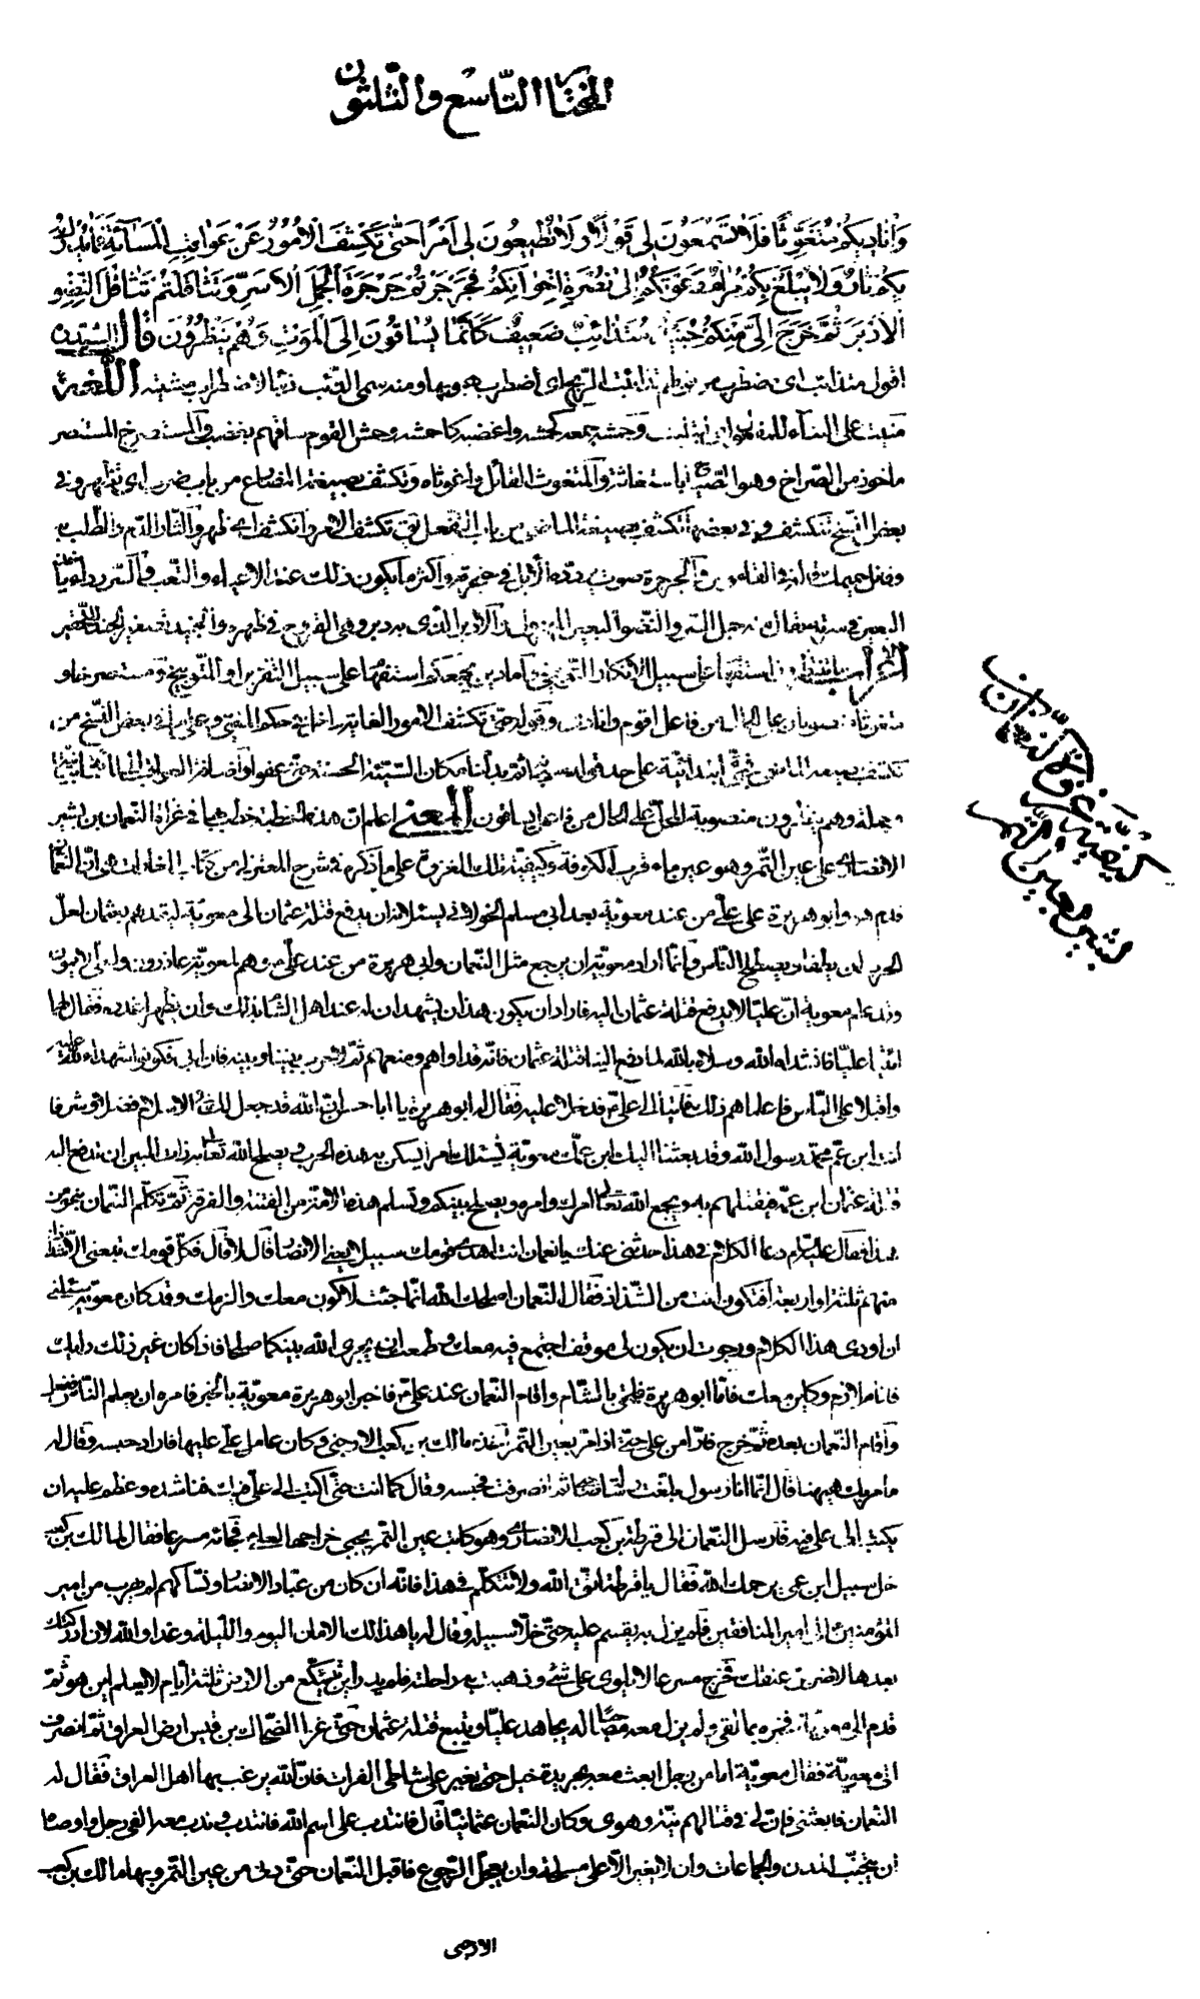 المختار التاسع والثلثون
وَاُنادِيكُمْ مُتَغَوِّثًا فَلا تَسْمَعُونَ لِي قَوْلًا وَلا تُطِيعُونَ لِي اَمْرًا حَتّى تَكَشَّفَ الْاُمُورُ عَنْ عَواقِبِ الْمَساءَةِ فَما يُدْرَكُ
بِكُمْ ثارٌ وَلا يُبْلَغُ بِكُمْ مَرامٌ دَعَوْتُكُمْ اِلى نُصْرَةِ اِخْوانِكُمْ فَجَرْجَرْتُمْ جَرْجَرَةَ الْجَمَلِ الْاَسَرِّ وَتَثاقَلْتُمْ تَثاقُلَ النِّضْوِ
الْاَدْبَرِ ثُمَّ خَرَجَ اِلَيَّ مِنْكُمْ جُنَيْدٌ مُتَذائِبٌ ضَعِيفٌ كَاَنَّما يُساقُونَ اِلَى الْمَوْتِ وَهُمْ يَنْظُرُونَ قال السيّد
اقول متذائب اى مضطرب من قولهم تذائبت الريح اى اضطرب هبوبها ومنه سمى الذئب ذئبا لاضطراب مشيته اللغة
منيت على البناء للمفعول اى ابتليت وحمشه جمعه كحمشه واغضبه كاحمشه وحمش القوم ساقهم بغضب والمستصرخ المستنصر
ماخوذ من الصراخ وهو الصياح باستغاثة والمتغوث القائل واغوثاه وتكشف بصيغة المضارع من باب ضرب اى تظهر وفى
بعض النسخ تنكشف وفى بعضها تكشف بصيغة الماضى من باب التفعل يق تكشف الامر وانكشف اى ظهر والثار الدم والطلب به
وقاتل حميمك قاله فى القاموس والجرجرة صوت يردده الابل فى حنجرته واكثر ما يكون ذلك عند الاعياء والتعب والسرر داء ياخذ
البعير فى سرته يقال منه جمل اسر والنضو البعير المهزول والادبر الذى به دبر وهى القروح فى ظهره والجنيد تصغير الجند للتحقير
الاعراب ما تنتظرون استفهام على سبيل الانكار التوبيخى واما دين يجمعكم استفهام على سبيل التقرير او التوبيخ ومستصرخا و
متغوثا منصوبان على الحال من فاعل اقوم وانادى وقوله حتى تكشف الامور الغاية داخلة فى حكم المغيى وعلى ما فى بعض النسخ من
وجملة وهم ينظرون منصوبة المحل على الحال من فاعل يساقون المعنى اعلم ان هذه الخطبة خطب بها فى غزاة النعمان بن بشير
الانصارى على عين التمر وهو عين ماء قرب الكوفة وكيفية تلك الغزوة على ما ذكره فى شرح المعتزلى من كتاب الغارات هى ان النعمان
قدم هو وابو هريرة على علىّ من عند معوية بعد ابى مسلم الخولانى يسئلانه ان يدفع قتلة عثمان الى معوية ليقيدهم بعثمان لعل
الحرب ان يطفأ ويصطلح الناس وانما اراد معوية ان يرجع مثل النعمان وابى هريرة من عند علىّ وهم لمعوية عاذرون ولعلىّ لائمون
وقد علم معوية ان عليا لا يدفع قتلة عثمان اليه فاراد ان يكون هذان يشهدان له عند اهل الشام بذلك وان يظهر عذره فقال لهما
ائتيا عليا فانشداه الله وسلاه بالله لما دفع الينا قتلة عثمان فانه قد اواهم ومنعهم ثم لا حرب بيننا وبينه فان ابى فكونوا شهداء لله عليه
واقبلا على الناس فاعلماهم ذلك فاتيا الى علىّ فدخلا عليه فقال له ابو هريرة يا ابا حسن ان الله قد جعل لك فى الاسلام فضلا وشرفا
انت ابن عم محمد رسول الله وقد بعثنا اليك ابن عمك معوية يسئلك امرا يسكن به هذه الحرب ويصلح الله تعالى به ذات البين ان تدفع اليه
قتلة عثمان ابن عمه فيقتلهم به ويجمع الله تعالى امرك وامره ويصلح بينكم وتسلم هذه الامة من الفتنة والفرقة ثم تكلم النعمان بنحو من
هذا فقال عليه السلام دعا الكلام فى هذا حدثنى عنك يا نعمان انت اهدى قومك سبيلا يعنى الانصار قال لا قال فكل قومك تبعنى الا شذاذا
منهم ثلثة او اربعة افتكون انت من الشذاذ فقال النعمان اصلحك الله انما جئت لاكون معك والزمك وقد كان معوية سئلنى
ان اودى هذا الكلام ورجوت ان يكون لى موقف اجتمع فيه معك وطمعت ان يجرى الله بينكما صلحا فاذا كان غير ذلك رايك
فانا ملازمك وكاين معك فاما ابو هريرة فلحق بالشام واقام النعمان عند علىّ فاخبر ابو هريرة معوية بالخبر فامره ان يعلم الناس ففعل
واقام النعمان بعده ثم خرج فارّا من علىّ حتى اذا مرّ بعين التمر اخذه مالك بن كعب الارحبى وكان عامل علىّ عليها فاراد حبسه وقال له
ما مرّ بك ههنا قال انما انا رسول بلغت رسالة صاحبى ثم انصرفت فحبسه وقال كما انت حتى اكتب الى علىّ فيك فناشده وعظم عليه ان
يكتب الى علىّ فيه فارسل النعمان الى قرظة بن كعب الانصارى وهو كاتب عين التمر يجبى خراجها لعلىّ فجائه مسرعا فقال لمالك بن كعب
خل سبيل ابن عمى يرحمك الله فقال يا قرظة اتق الله ولا تتكلم فى هذا فانه ان كان من عباد الانصار ونساكهم لم يهرب من امير
المؤمنين الى امير المنافقين فلم يزل به يقسم عليه حتى خلى سبيله وقال له يا هذا لك الامان اليوم والليلة وغدا والله لان ادركتك
بعدها لاضربن عنقك فخرج مسرعا لا يلوى على شئ وذهبت به راحلته فلم يدر اين يتسكع من الارض ثلثة ايام لا يعلم اين هو ثم
قدم الى معوية فخبره بما لقى ولم يزل معه مصاحبا له يجاهد عليا ويتبع قتلة عثمان حتى غزا الضحاك بن قيس ارض العراق ثم انصرف
الى معوية فقال معوية اما من رجل ابعث معه بجريدة خيل حتى يغير على شاطى الفرات فان الله يرعب بها اهل العراق فقال له
النعمان فابعثنى فان لى فى قتالهم نية وهوى وكان النعمان عثمانيا قال فانتدب على اسم الله فانتدب وندب معه الفى رجل واوصاه
ان يتجنب المدن والجماعات وان لا يغير الا على مسلحة وان يعجل الرجوع فاقبل النعمان حتى دنى من عين التمر وبها مالك بن كعب
الارحبى
كيفيّة غزوة النعمان بن
بشير بعين التمر